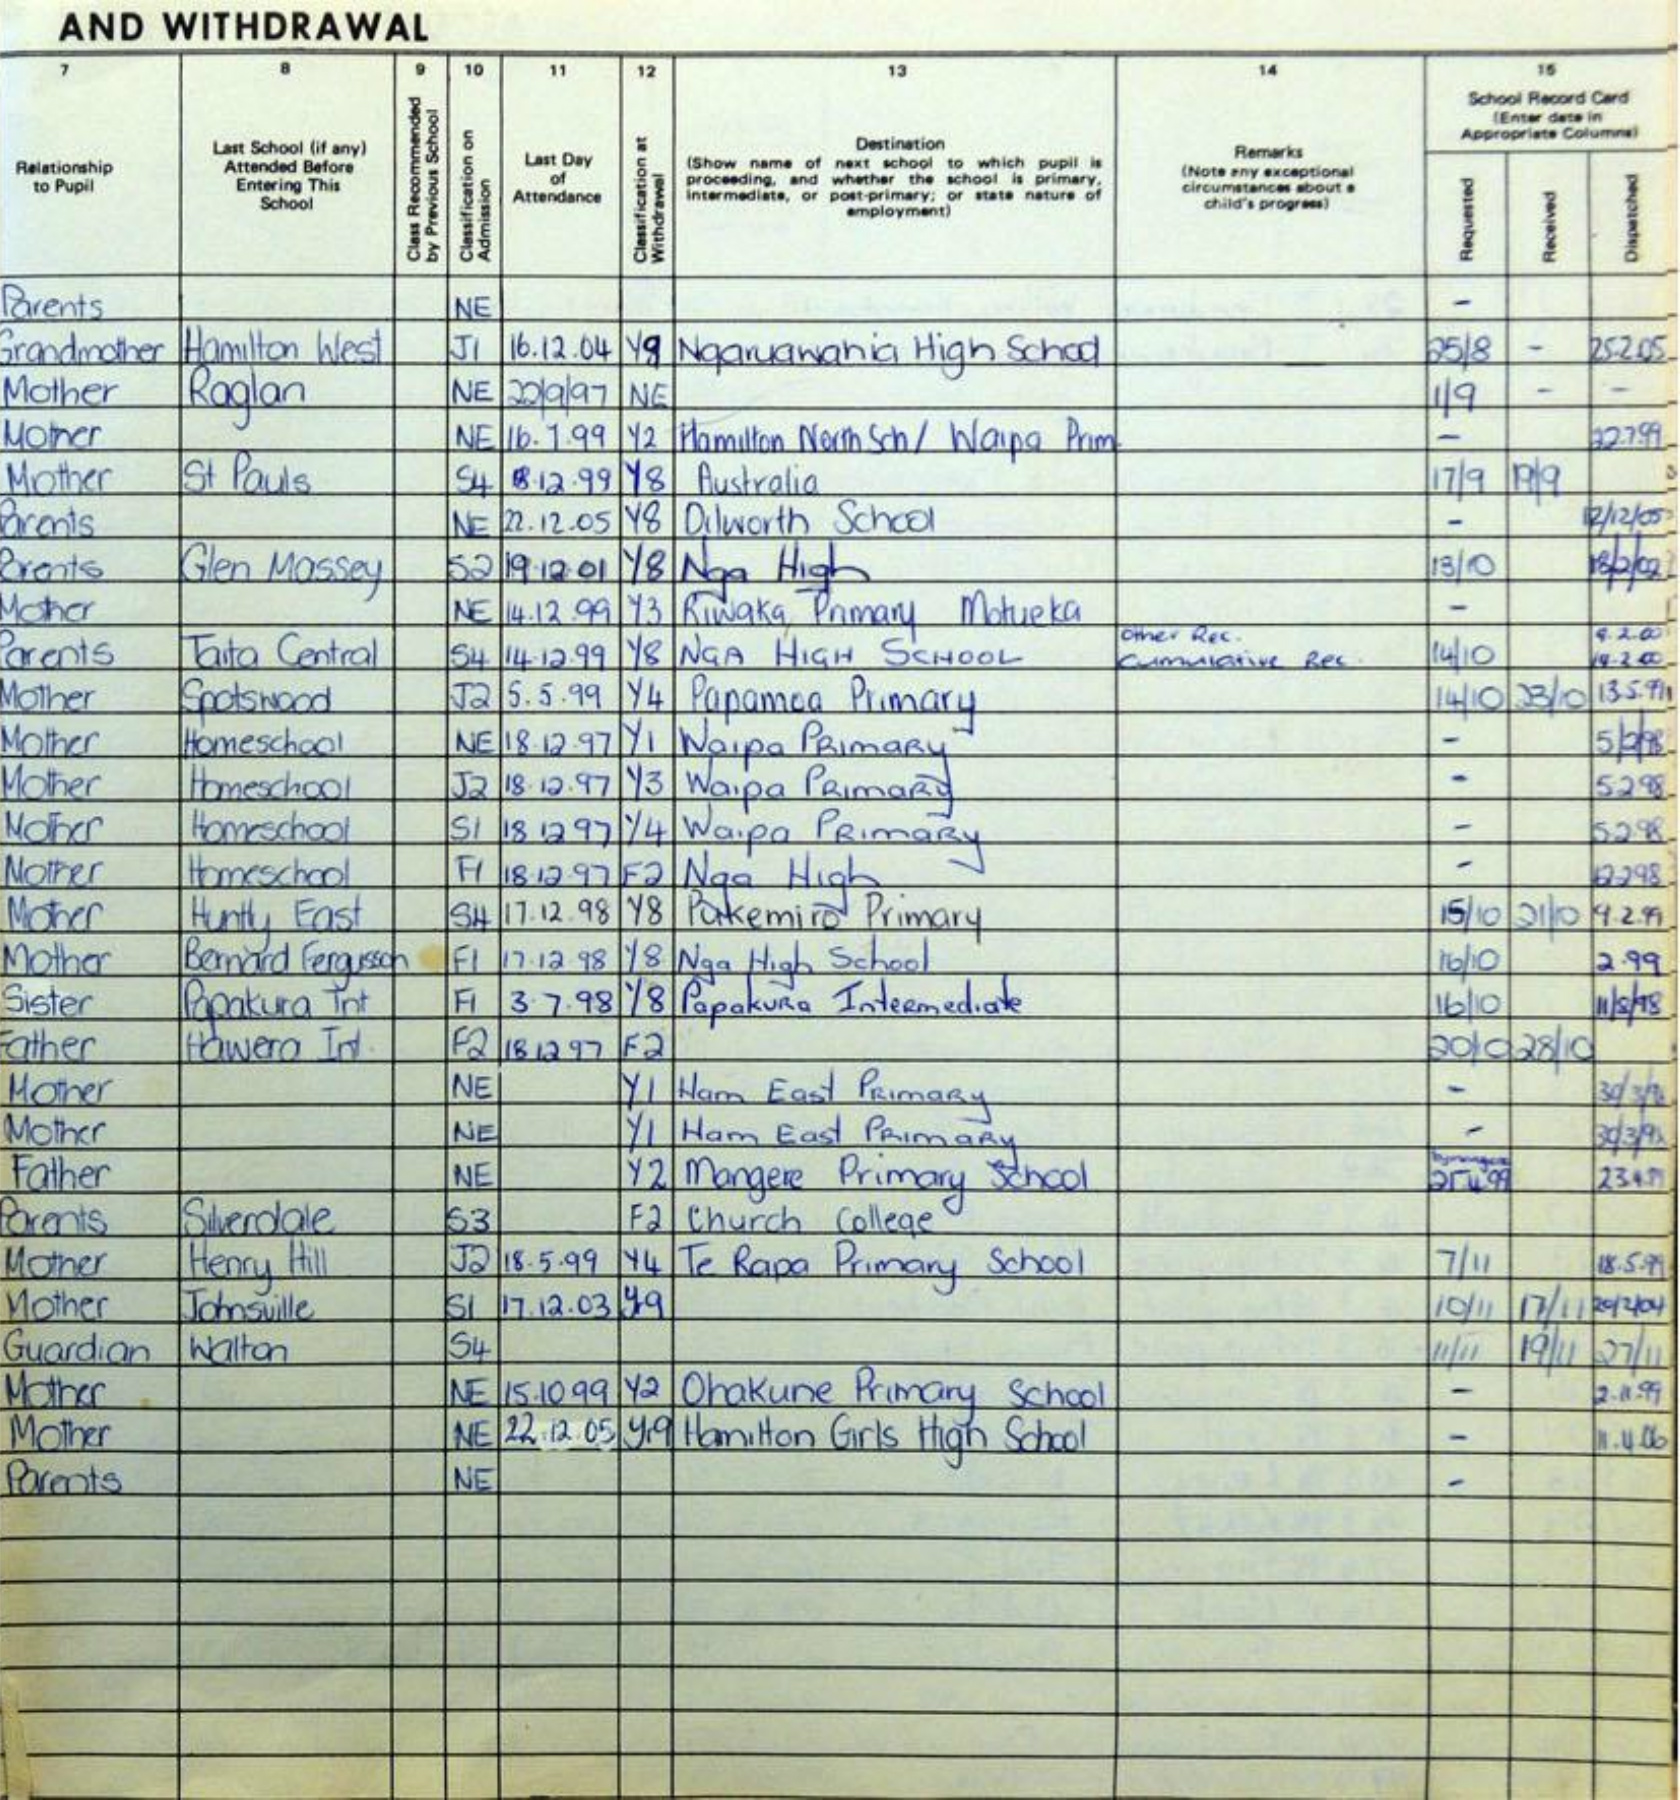 AND WITHDRAWAL
7 8 9 10 11 12 13 14 15
Relationship to Pupil
Last School (if any) Attended Before Entering This School
Class Recommended by Previous School
Classification on Admission
Last Day of Attendance
Classification at Withdrawal
Destination
(Show name of next school to which pupil is proceeding, and whether the school is primary, intermediate, or post-primary; or state nature of employment)
Remarks
(Note any exceptional circumstances about a child's progress)
School Record Card
(Enter date in Appropriate Columns)
Requested
Received
Dispatched
Parents NE -
Grandmother Hamilton West J1 16.12.04 Y9 Ngaruawahia High School 25/8 - 25.2.05
Mother Raglan NE 22/9/97 NE 1/9 - -
Mother NE 16.7.99 Y2 Hamilton North Sch/ Waipa Prim - 22.7.99
Mother St Pauls S4 8.12.99 Y8 Australia 17/9 19/9
Parents NE 22.12.05 Y8 Dilworth School - 12/12/05
Parents Glen Massey S2 19.12.01 Y8 Nga High 13/10 18/2/02
Mother NE 14.12.99 Y3 Riwaka Primary Motueka -
Parents Taita Central S4 14.12.99 Y8 NGA HIGH SCHOOL Other Rec. Cumulative Rec. 14/10 14.2.00
Mother Spotswood J2 5.5.99 Y4 Papamoa Primary 14/10 23/10 13.5.99
Mother Homeschool NE 18.12.97 Y1 Waipa Primary - 5/2/98
Mother Homeschool J2 18.12.97 Y3 Waipa Primary - 5.2.98
Mother Homeschool S1 18.12.97 Y4 Waipa Primary - 5.2.98
Mother Homeschool F1 18.12.97 F2 Nga High - 12.2.98
Mother Huntly East S4 17.12.98 Y8 Pukemiro Primary 15/10 21/10 9.2.99
Mother Bernard Fergusson F1 17.12.98 Y8 Nga High School 16/10 2.99
Sister Papakura Int F1 3.7.98 Y8 Papakura Intermediate 16/10 11/8/98
Father Hawera Int. F2 18.12.97 F2 20/10 28/10
Mother NE Y1 Ham East Primary -
Mother NE Y1 Ham East Primary -
Father NE Y2 Mangere Primary School 23.4.99
Parents Silverdale S3 F2 Church College
Mother Henry Hill J2 18.5.99 Y4 Te Rapa Primary School 7/11 18.5.99
Mother Johnsville S1 17.12.03 Yr9 10/11 17/11 20/2/04
Guardian Walton S4 11/11 19/11 27/11
Mother NE 15.10.99 Y2 Ohakune Primary School - 2.11.99
Mother NE 22.12.05 Yr9 Hamilton Girls High School - 11.4.06
Parents NE -